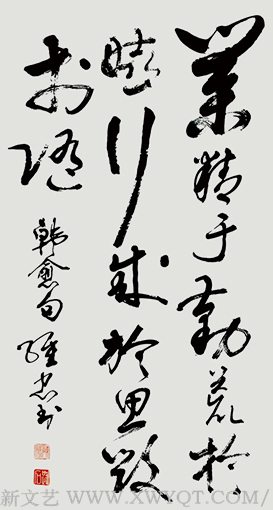 業精于勤荒於
嬉行成於思毀
於隨
韓愈句 維忠书
新文艺 WWW.XWYQT.COM